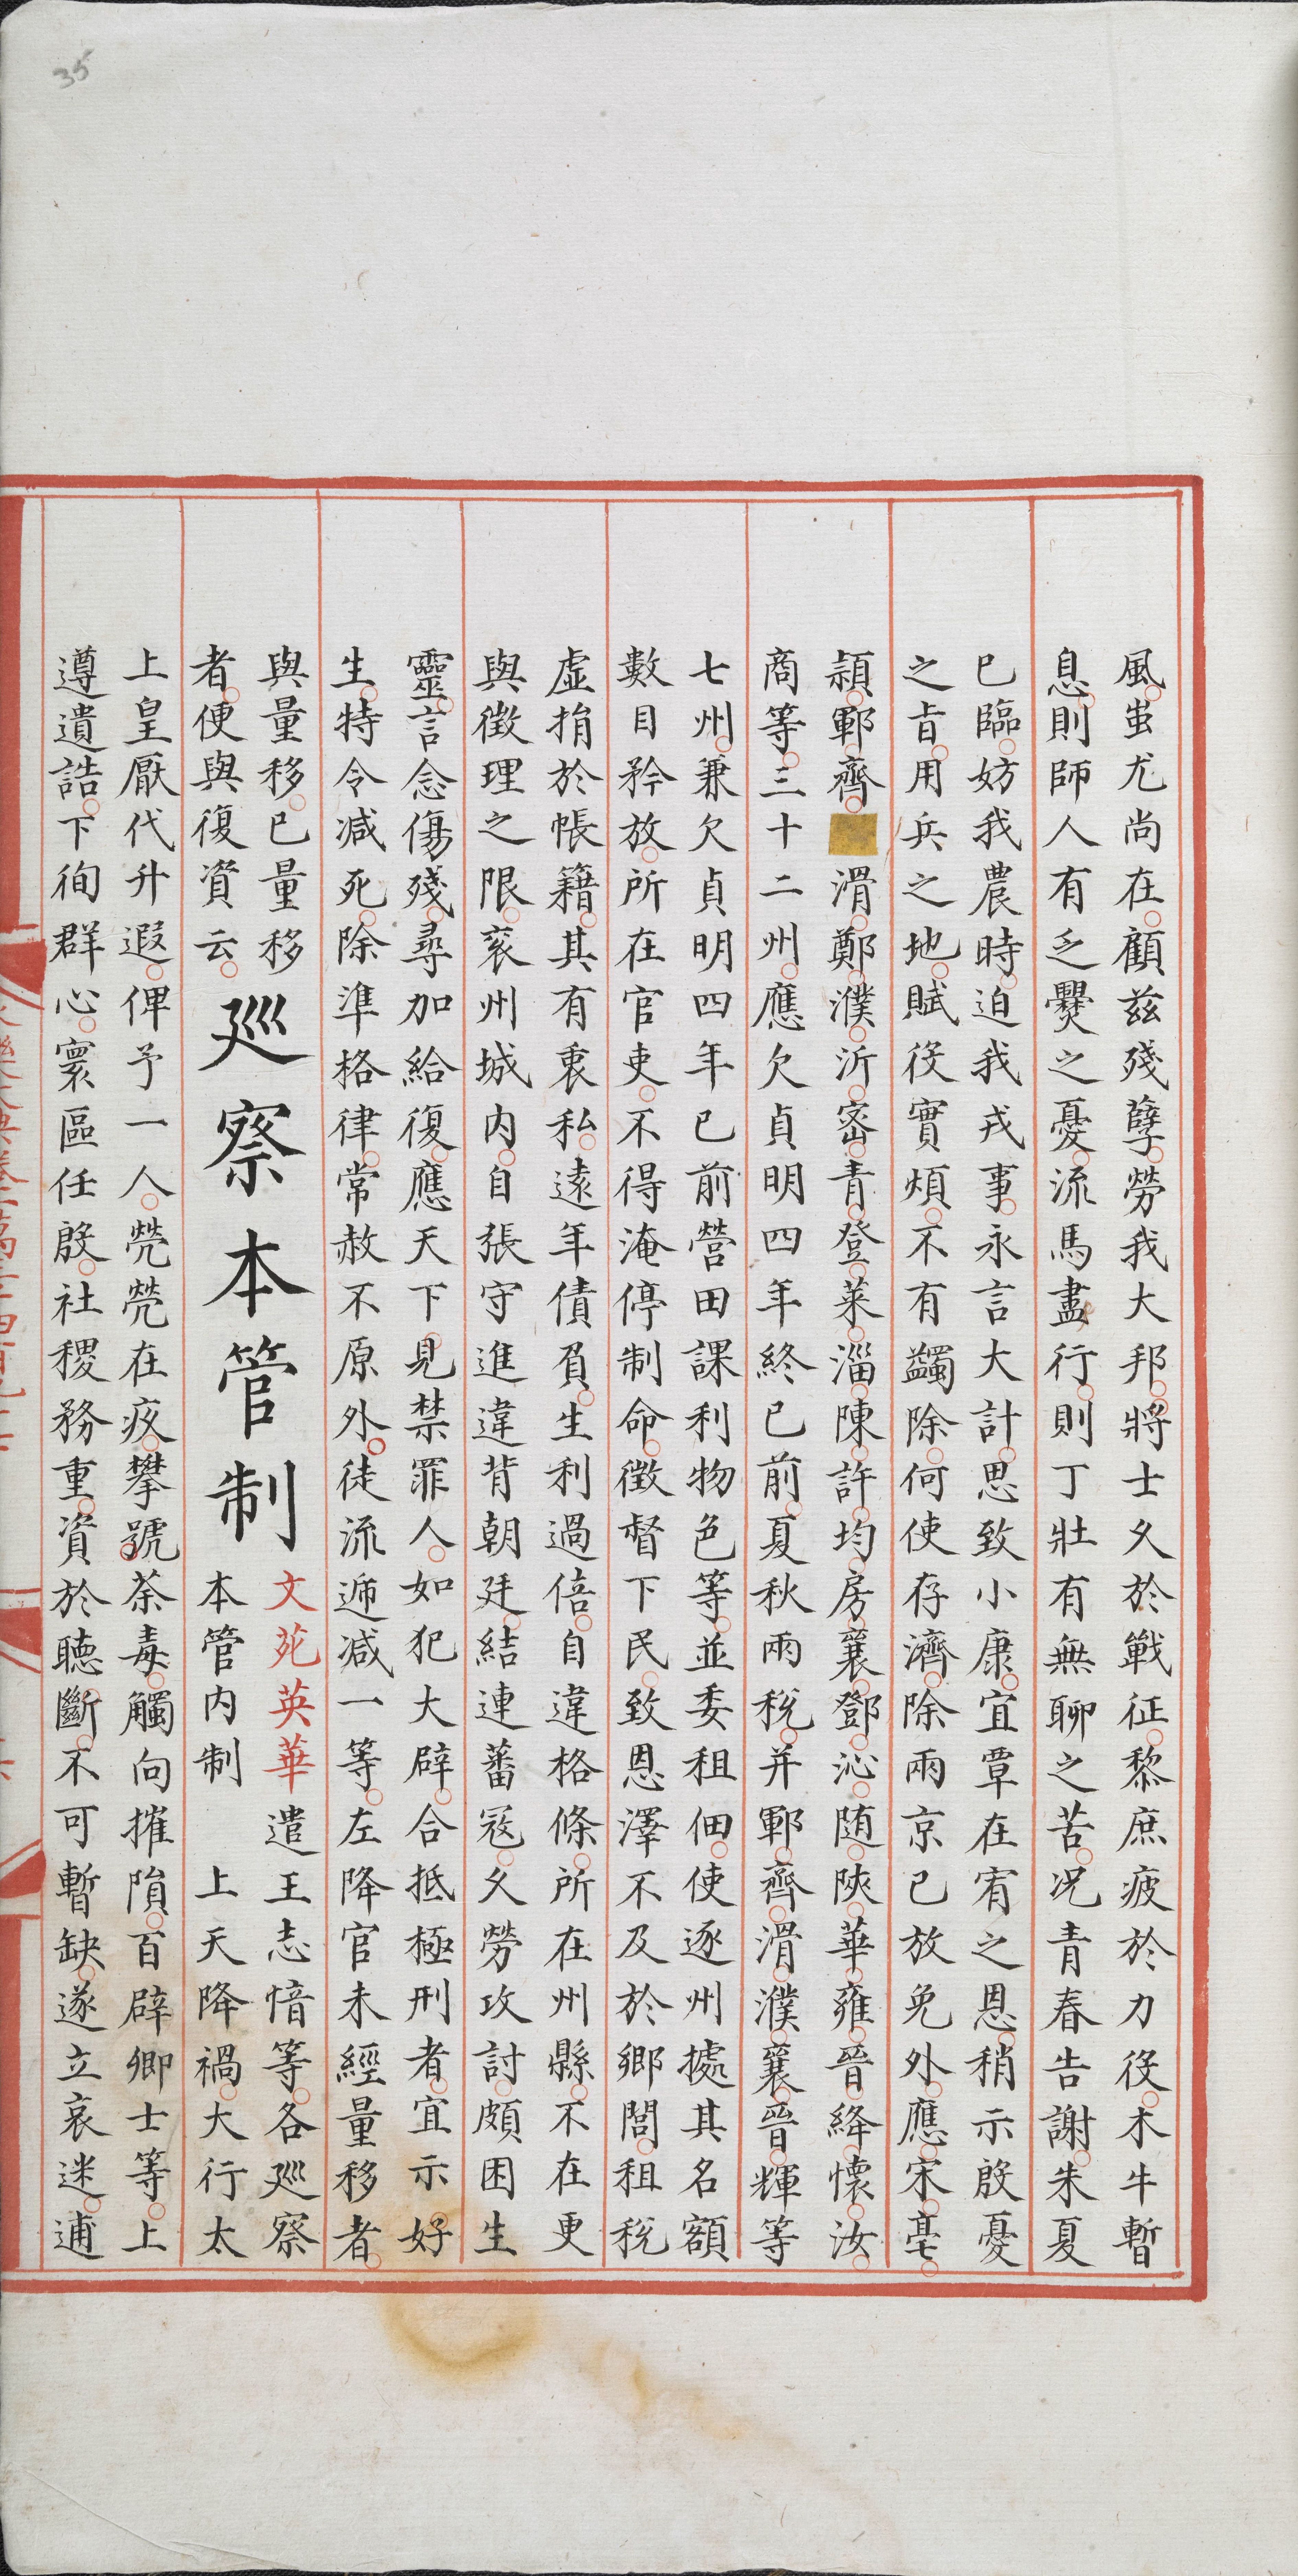 35
風蚩尤尚在顧兹殘孽勞我大邦將士久於戰征黎庶疲於力役木牛暫
息則師人有乏爨之憂流馬盡行則丁壯有無聊之苦况青春告謝朱夏
已臨妨我農時迫我戎事永言大計思致小康宜覃在宥之恩稍示殷憂
之旨用兵之地賦役實煩不有蠲除何使存濟除兩京已放免外應宋亳
頴鄆齊滑鄭濮沂密青登萊淄陳許均房襄鄧沁随陜華雍晉絳懷汝
商等三十二州應欠貞明四年終已前夏秋兩稅并鄆齊滑濮襄晉輝等
七州兼欠貞明四年已前營田課利物色等並委租佃使逐州據其名額
數目矜放所在官吏不得淹停制命徵督下民致恩澤不及於鄉閭租稅
虛捐於帳籍其有衷私遠年債負生利過倍自違格條所在州縣不在更
與徵理之限兖州城内自張守進違背朝廷結連蕃冦久勞攻討頗困生
靈言念傷殘尋加給復應天下見禁罪人如犯大辟合抵極刑者宜示好
生特令减死除準格律常赦不原外徒流逓减一等左降官未經量移者
與量移已量移
者便與復資云
廵察本管制
文苑英華遣王志愔等各廵察
本管内制 上天降禍大行太
上皇厭代升遐俾予一人煢煢在疚攀號荼毒觸向摧隕百辟卿士等上
遵遺誥下徇群心寰區任殷社稷務重資於聴斷不可暫缺遂立哀迷逋